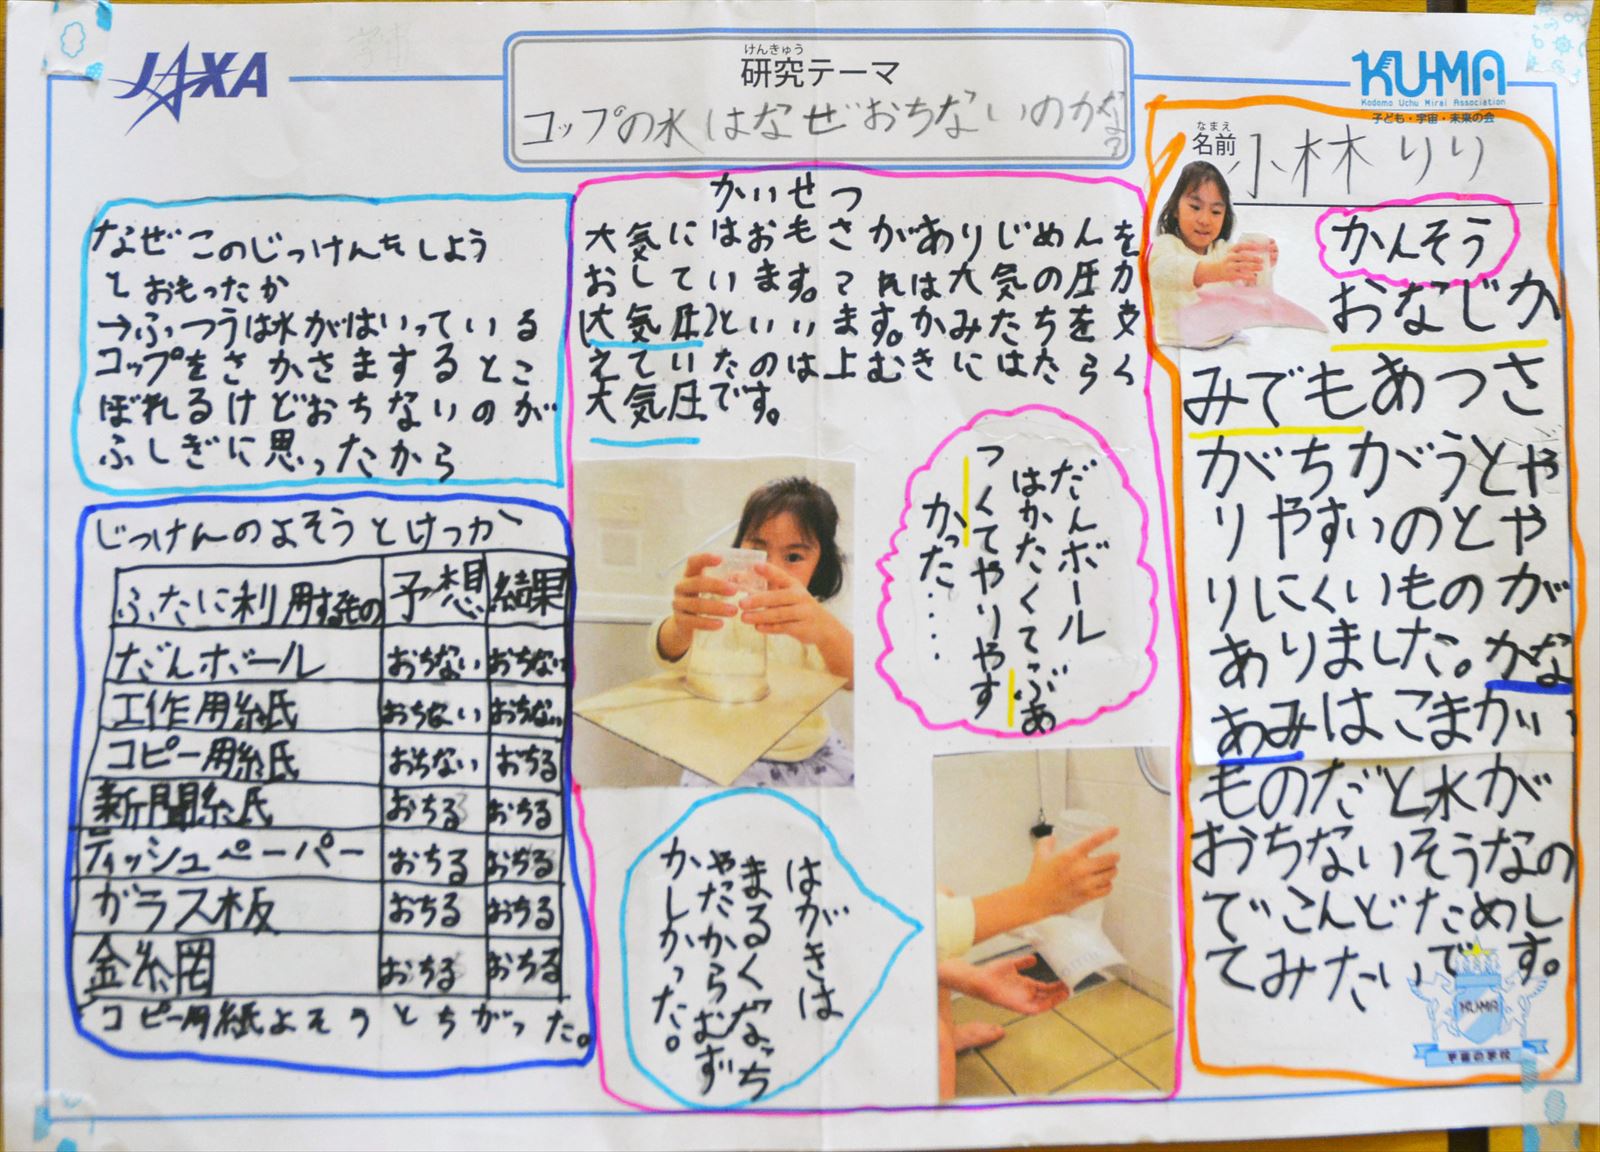 JAXA
けんきゅう
研究テーマ
コップの水はなぜおちないのか
KU-MA
Kodomo Uchu Mirai Association
子ども・宇宙・未来の会
なまえ
名前 小林りり
なぜこのじっけんをしよう
とおもったか
→ふつうは水がはいっている
コップをさかさまするとこ
ぼれるけどおちないのが
ふしぎに思ったから
じっけんのよそうとけっか
ふたに利用するもの 予想 結果
だんボール おちない おちない
工作用紙 おちない おちない
コピー用紙 おちない おちる
新聞紙 おちる おちる
ティッシュペーパー おちる おちる
ガラス板 おちる おちる
金網 おちる おちる
コピー用紙よそうとちがった。
かいせつ
大気にはおもさがありじめんを
おしています。これは大気の圧力
(大気圧)といいます。かみたちを支
えていたのは上むきにはたらく
大気圧です。
だんボール
はかたくてぶあ
つくてやりやす
かった・・・・
はがきは
まるくなっち
ゃだからむず
かしかった。
かんそう
おなじか
みでもあつさ
がちがうとや
りやすいのとや
りにくいものが
ありました。かな
あみはこまかい
ものだと水が
おちないそうなの
でこんどためし
てみたいです。
KUMA
宇宙の学校